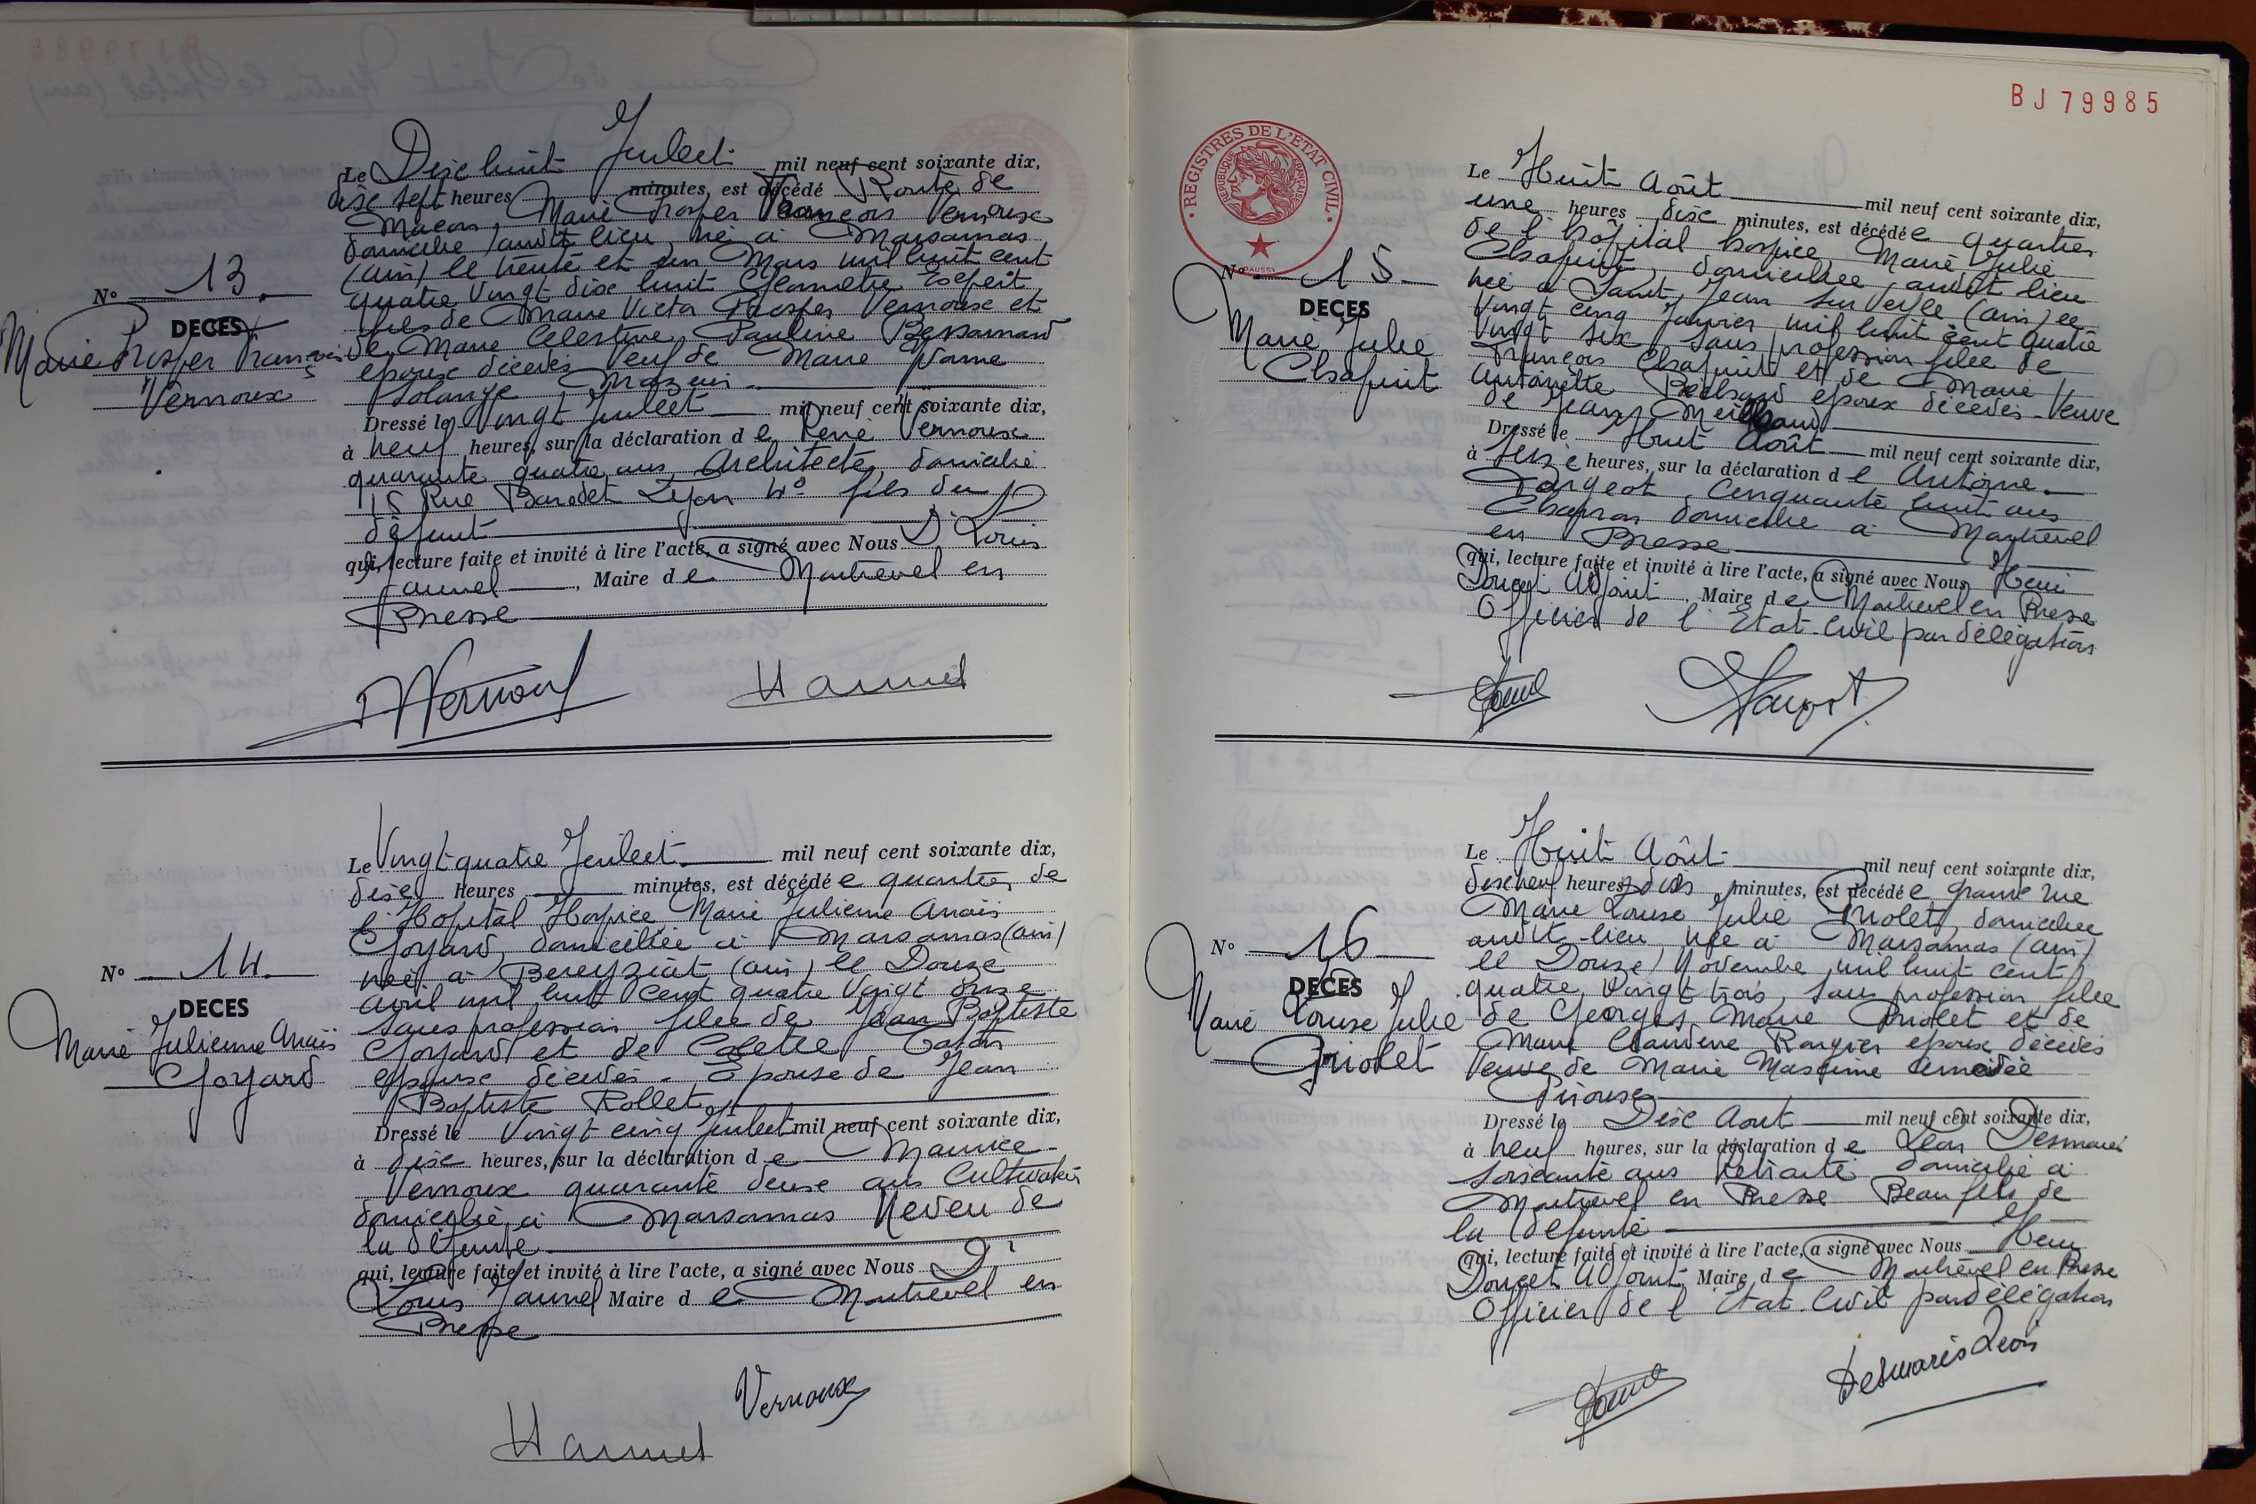 Le Dix huit Juillet mil neuf cent soixante dix,
dix sept heures minutes, est décédé Route de
Macon, Marie Prosper François Vernoux
domicilié audit lieu né à Marsonnas
(ain) le trente et un Mars mil huit cent
quatre Vingt dix huit Géomètre Expert
fils de Marie Victor Prosper Vernoux et
de Marie Celestine Pauline
époux décédés Veuf de Marie
Solange
Dressé le Vingt Juillet mil neuf cent soixante dix,
à neuf heures, sur la déclaration de René Vernoux
quarante quatre ans, Architecte, domicilié
15 Rue Barodet Lyon 4e fils du
défunt
qui, lecture faite et invité à lire l'acte, a signé avec Nous Dr Louis
Jaunel, Maire de Montrevel en
Bresse
N° 13
DECES
Marie Prosper François
Vernoux
Vernoux
Le Vingt quatre Juillet mil neuf cent soixante dix,
dix heures minutes, est décédée quartier de
l'Hopital Hospice Marie Julienne Anaïs
Goyard, domiciliée à Marsonnas (ain)
née à Bereyziat (ain) le Douze
avril mil huit cent quatre Vingt onze
sans profession, fille de Jean Baptiste
Goyard et de Colette
époux décédés. Epouse de Jean
Baptiste Rollet
Dressé le Vingt cinq Juillet mil neuf cent soixante dix,
à dix heures, sur la déclaration de Maurice
Vernoux quarante deux ans Cultivateur
domicilié à Marsonnas Neveu de
la défunte
qui, lecture faite et invité à lire l'acte, a signé avec Nous Dr
Louis Jaunel Maire de Montrevel en
Bresse
N° 14
DECES
Marie Julienne Anaïs
Goyard
Vernoux
BJ 79985
REGISTRES DE L'ETAT CIVIL
REPUBLIQUE FRANÇAISE
Le Huit Août mil neuf cent soixante dix,
une heures dix minutes, est décédée quartier
de l'hôpital hospice, Marie Julie
Chapuit, domiciliée audit lieu
née à Saint Jean sur Veyle (ain) le
Vingt cinq Janvier mil huit cent quatre
Vingt six, sans profession fille de
François Chapuit et de Marie
Antoinette époux décédés. Veuve
de Jean
Dressé le Huit Août mil neuf cent soixante dix,
à seize heures, sur la déclaration de Antoine
Fargeot Cinquante huit ans
domicilié à Montrevel
en Bresse
qui, lecture faite et invité à lire l'acte, a signé avec Nous Henri
Doucet Adjoint, Maire de Montrevel en Bresse
Officier de l'Etat Civil par délégation
N° 15
DECES
Marie Julie
Chapuit
Le Huit Août mil neuf cent soixante dix,
dix neuf heures dix minutes, est décédée grande rue
Marie Louise Julie Griolet, domiciliée
audit lieu, née à Marsonnas (ain)
le Douze Novembre mil huit cent
quatre Vingt trois, sans profession fille
de Georges Marie Griolet et de
Marie Claudine époux décédés
Veuve de Marie Maxime
Piroux
Dressé le Dix Aout mil neuf cent soixante dix,
à neuf heures, sur la déclaration de Léon Desmaris
soixante ans Retraité domicilié à
Montrevel en Bresse Beau fils de
la défunte
qui, lecture faite et invité à lire l'acte, a signé avec Nous Henri
Doucet Adjoint Maire de Montrevel en Bresse
Officier de l'Etat Civil par délégation
N° 16
DECES
Marie Louise Julie
Griolet
Desmaris Léon